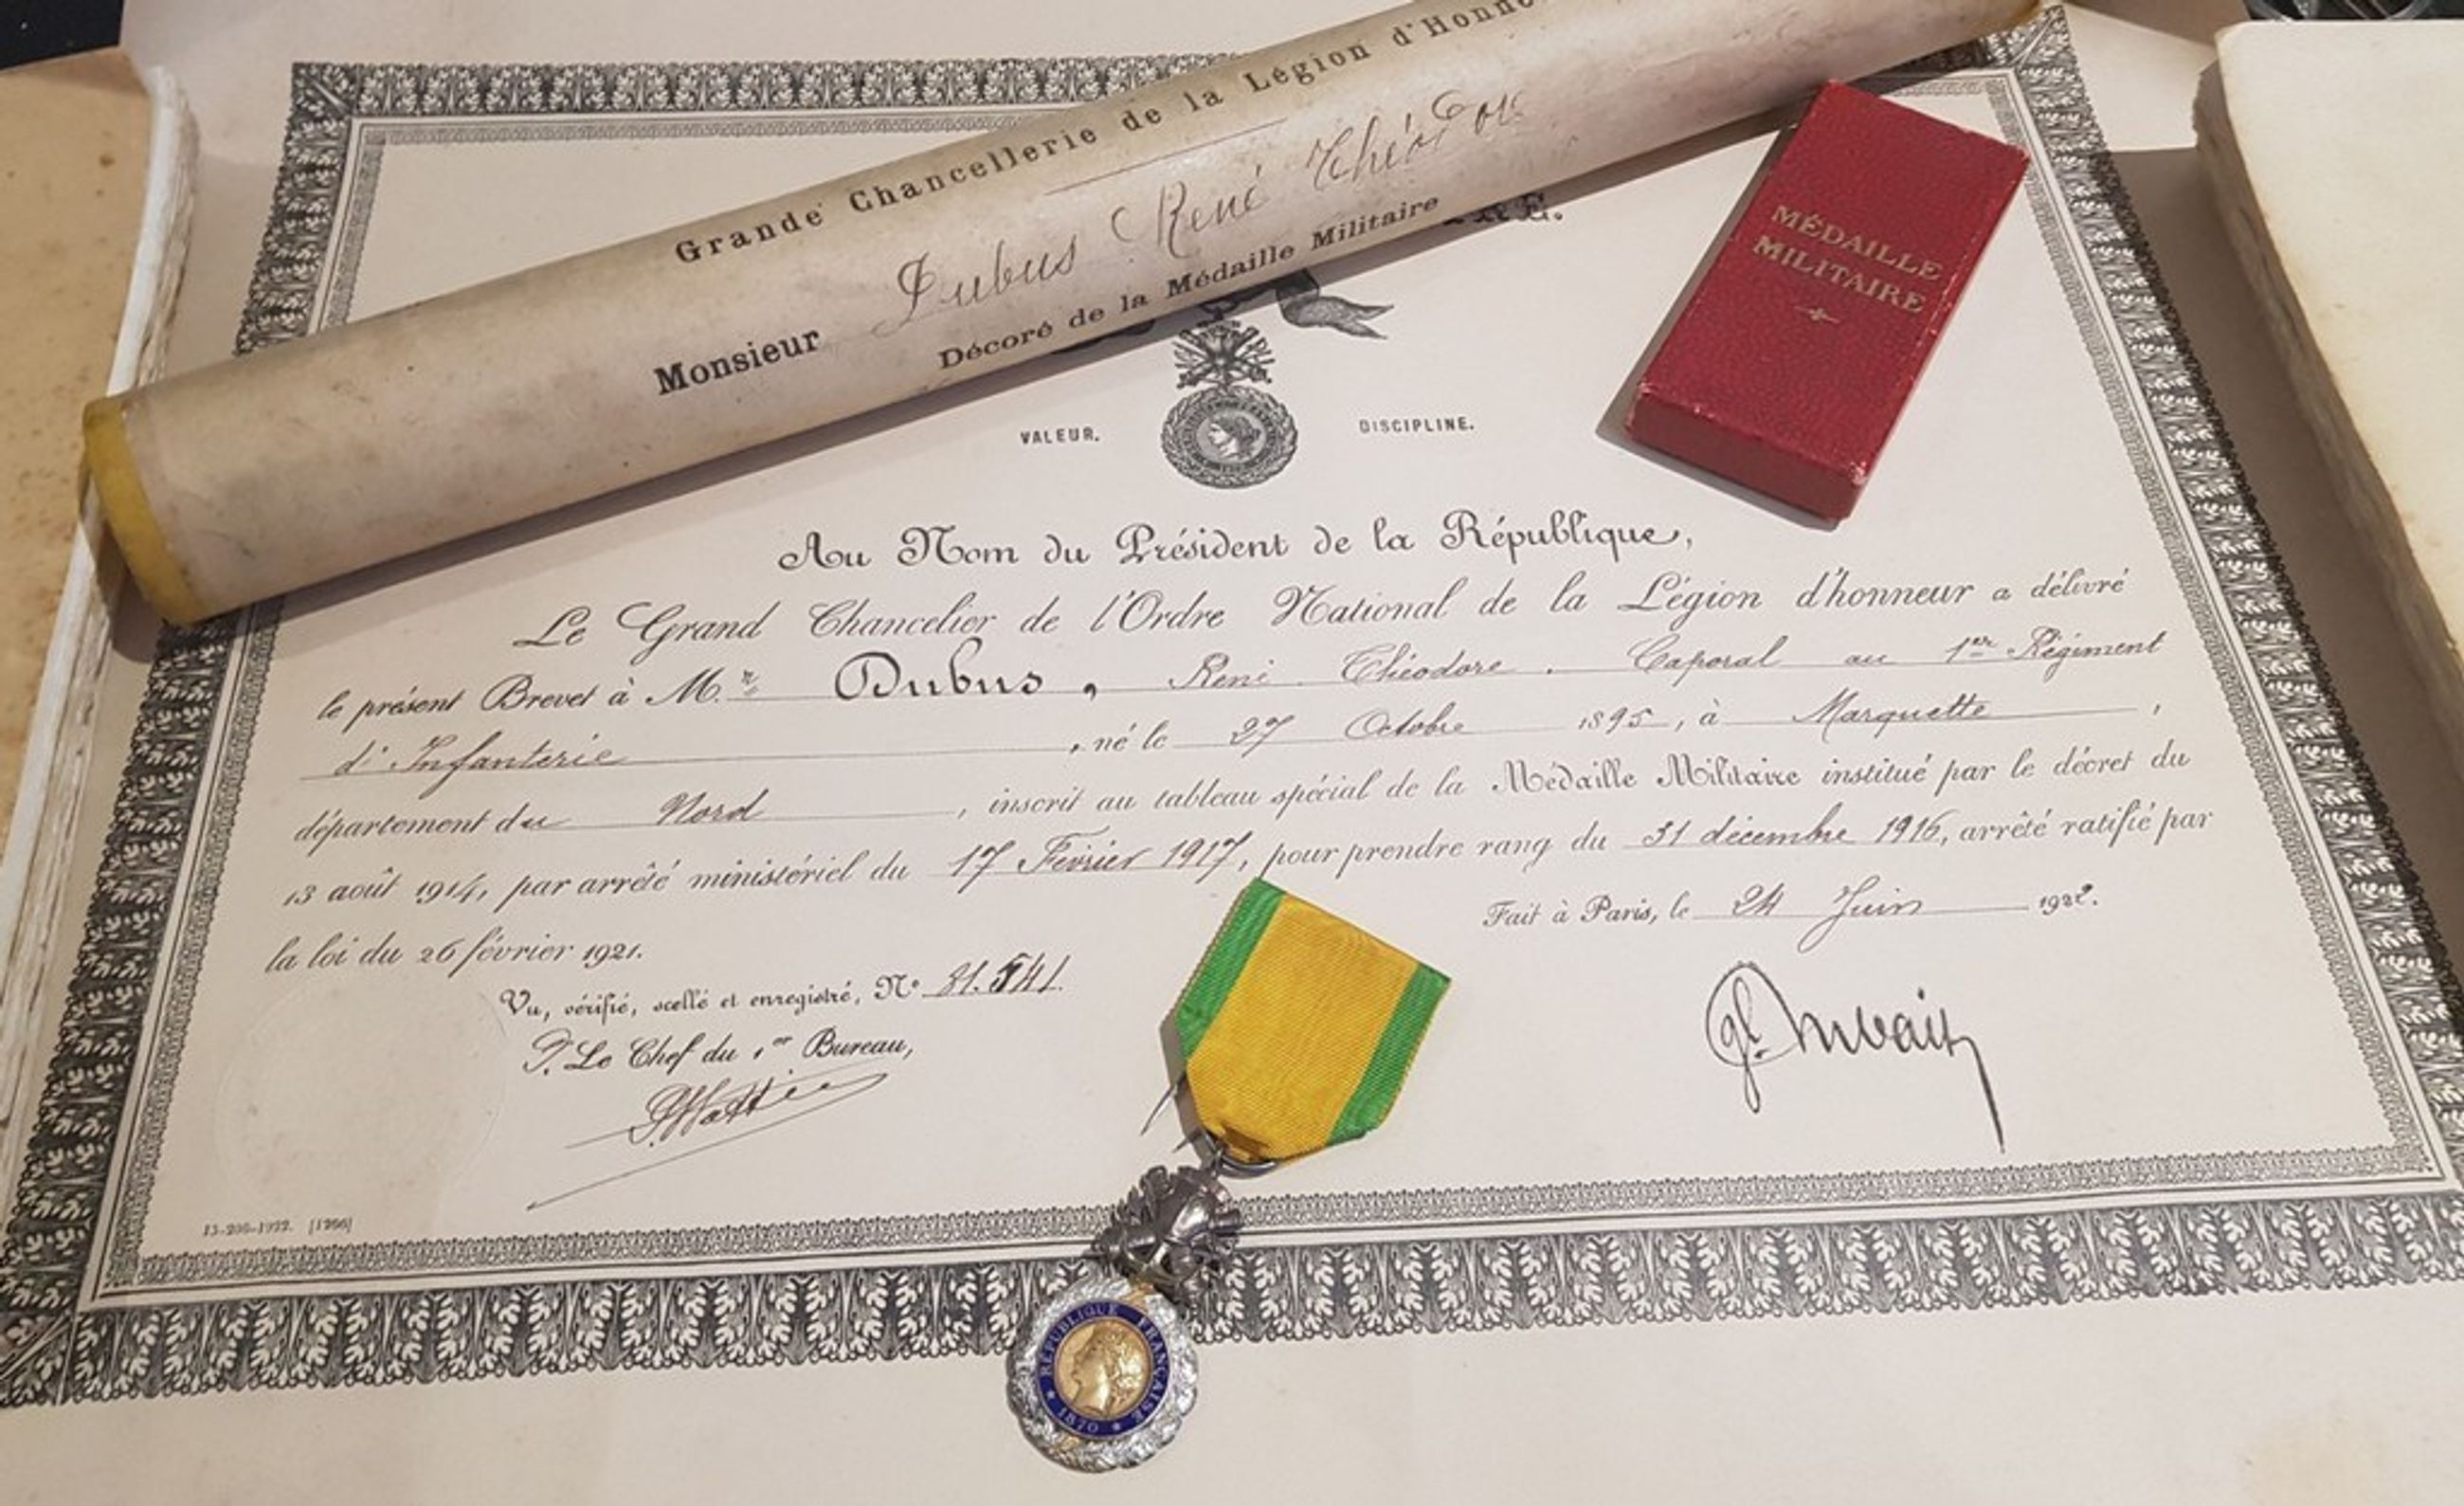 Grande Chancellerie de la Légion d'Honne
Monsieur Dubus René Théodore
Décoré de la Médaille Militaire
MÉDAILLE
MILITAIRE
VALEUR. DISCIPLINE.
Au Nom du Président de la République,
Le Grand Chancelier de l'Ordre National de la Légion d'honneur a délivré
le présent Brevet à M.r Dubus, René Théodore. Caporal au 1er Régiment
d'Infanterie, né le 27 Octobre 1895, à Marquette,
département du Nord, inscrit au tableau spécial de la Médaille Militaire institué par le décret du
13 août 1914, par arrêté ministériel du 17 Février 1917, pour prendre rang du 31 décembre 1916, arrêté ratifié par
la loi du 26 février 1921.
Fait à Paris, le 24 Juin 1922.
Vu, vérifié, scellé et enregistré, No 31.541.
P. Le Chef du 1er Bureau,
13-200-1922. [1266]
RÉPUBLIQUE FRANÇAISE
* 1870 *